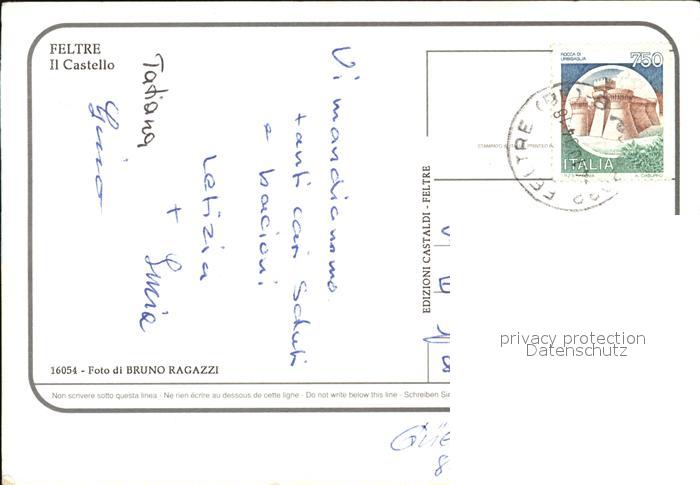 FELTRE
Il Castello
Vi mandiammo
tanti cari saluti
e bacioni
Letizia
+ Lucia
Tatiana
EDIZIONI CASTALDI - FELTRE
ROCCA DI
URBISAGLIA
750
ITALIA
FELTRE (BL)
16054 - Foto di BRUNO RAGAZZI
Non scrivere sotto questa linea - Ne rien écrire au dessous de cette ligne - Do not write below this line - Schreiben Sie
privacy protection
Datenschutz